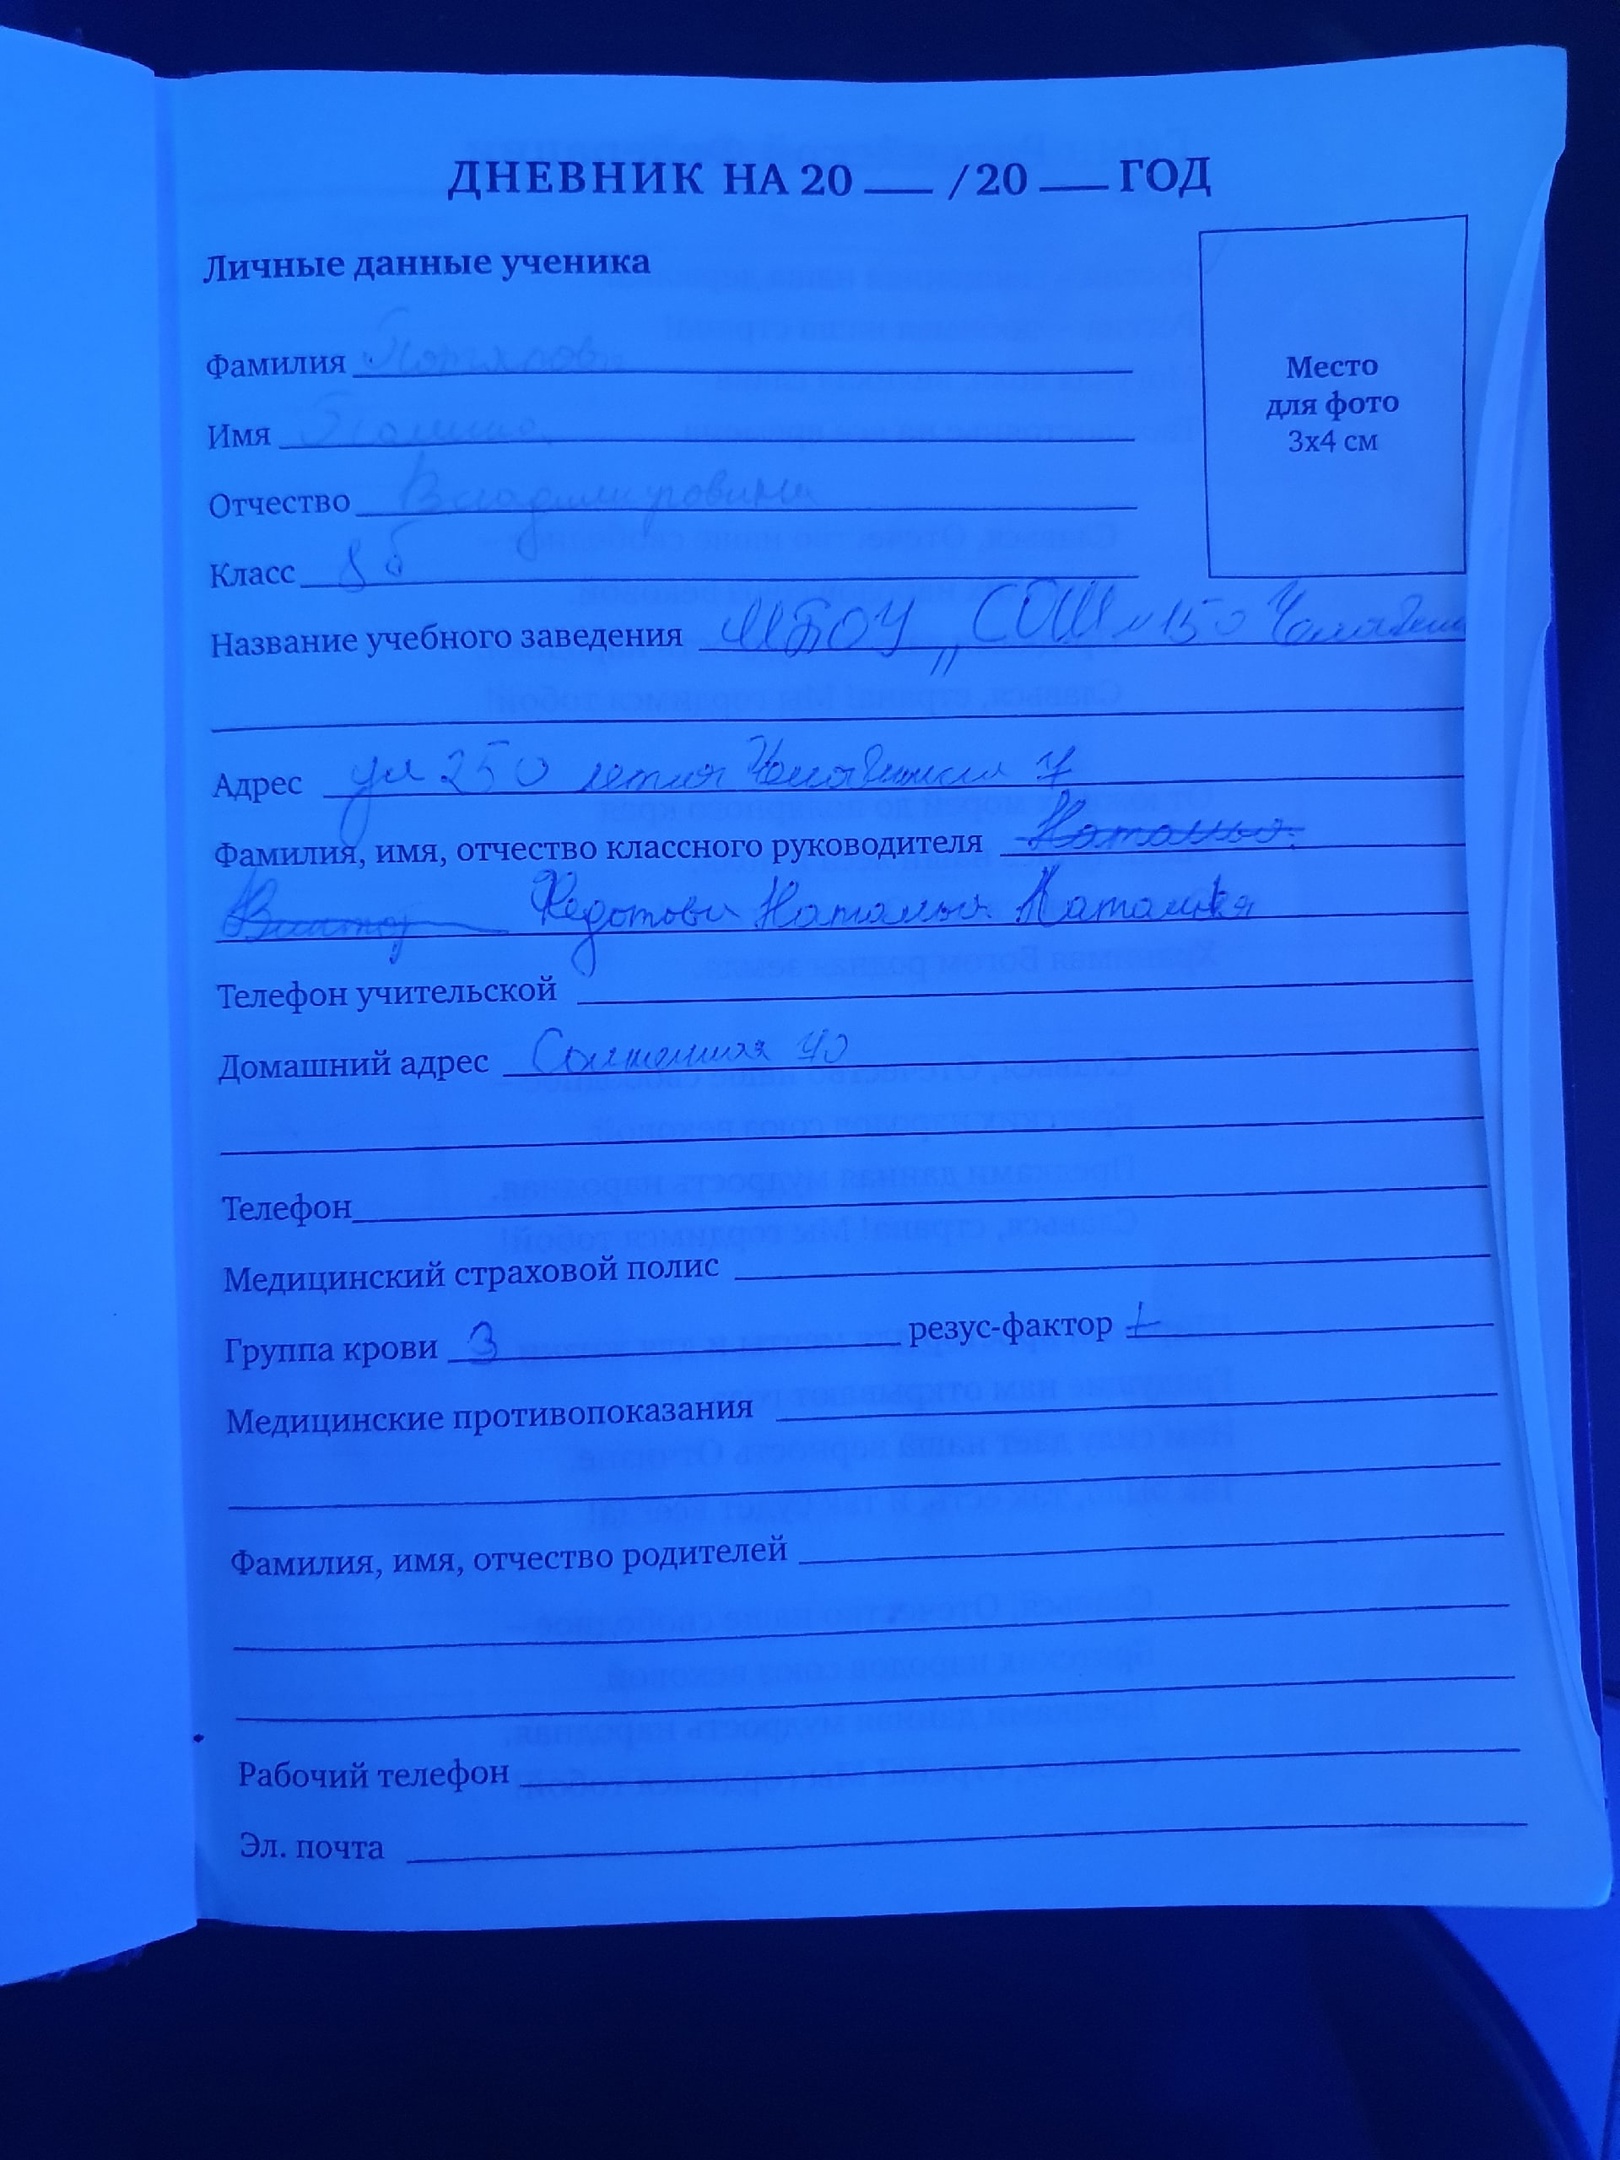 ДНЕВНИК НА 20 ___ / 20 ___ ГОД
Личные данные ученика
Место
для фото
3х4 см
Фамилия
Имя
Отчество Владимировна
Класс 8б
Название учебного заведения МБОУ „СОШ 150
Адрес ул 250 летия Челябинска 7
Фамилия, имя, отчество классного руководителя Наталья
Федотова Наталья
Телефон учительской
Домашний адрес 40
Телефон
Медицинский страховой полис
Группа крови 3 резус-фактор +
Медицинские противопоказания
Фамилия, имя, отчество родителей
Рабочий телефон
Эл. почта